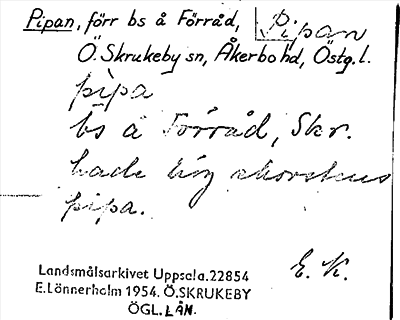 Pipan, förr bs å Förråd,
Pipan
Ö. Skrukeby sn, Åkerbo hd, Östg. l.
pìpa
bs å Förråd, Skr.
hade hög skorstens
pipa.
E. K.
Landsmålsarkivet Uppsala. 22854
E. Lönnerholm 1954. Ö. SKRUKEBY
ÖGL. LÄN.